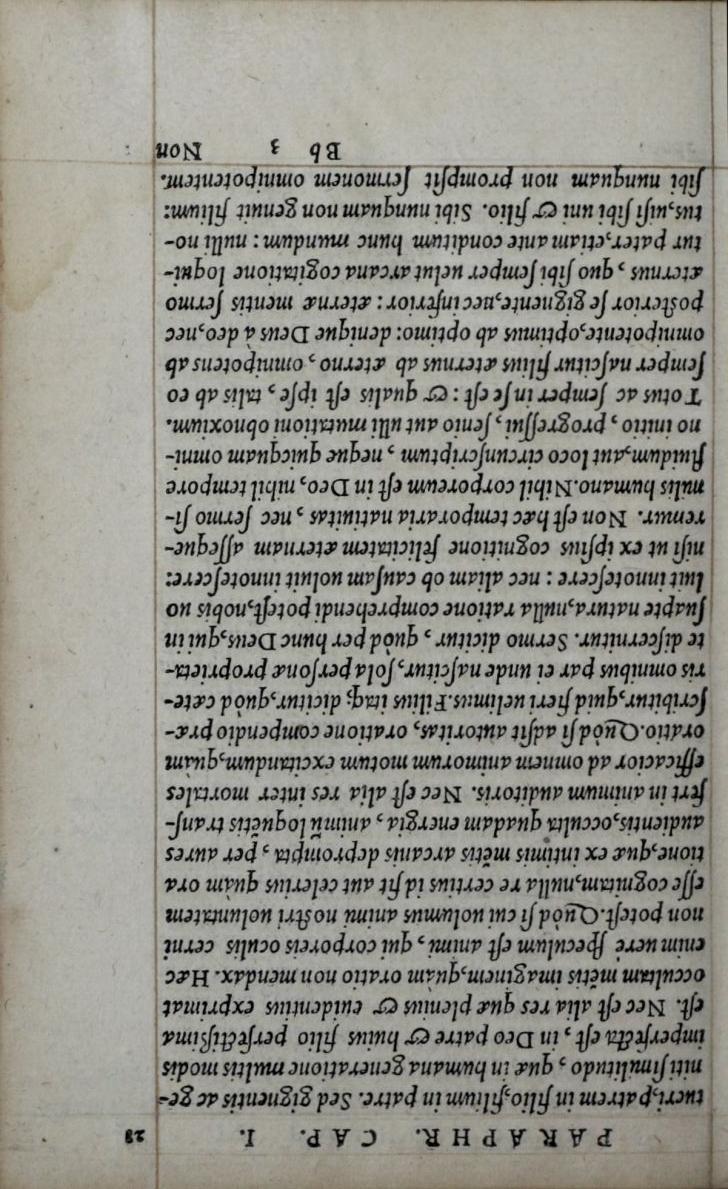 PARAPHR. CAP. I. 28
tueri, patrem in filio, filium in patre. Sed gignentis ac ge-
niti similitudo, quæ in humana generatione multis modis
imperfecta est, in Deo patre & huius filio perfectissima
est. Nec est alia res quæ plenius & euidentius exprimat
occultam mẽtis imaginem, quàm oratio non mendax. Hæc
enim uerè speculum est animi, qui corporeis oculis cerni
non potest. Quòd si cui uolumus animi nostri uoluntatem
esse cognitam, nulla re certius id fit aut celerius quàm ora
tione, quæ ex intimis mẽtis arcanis deprompta, per aures
audientis, occulta quadam energia, animũ loquẽtis trans-
fert in animum auditoris. Nec est alia res inter mortales
efficacior ad omnem animorum motum excitandum, quàm
oratio. Quòd si adsit autoritas, oratione compendio præ-
scribitur, quid fieri uelimus. Filius itaq; dicitur, quòd cæte-
ris omnibus par ei unde nascitur, sola personæ proprieta-
te discernitur. Sermo dicitur, quòd per hunc Deus, qui in
suapte natura, nulla ratione comprehendi potest, nobis uo
luit innotescere: nec aliam ob causam uoluit innotescere:
nisi ut ex ipsius cognitione felicitatem æternam asseque-
remur. Non est hæc temporaria natiuitas, nec sermo si-
milis humano. Nihil corporeum est in Deo, nihil tempore
fluidum, aut loco circunscriptum, neque quicquam omni-
no initio, progressui, senio aut ulli mutationi obnoxium.
Totus ac semper in se est: & qualis est ipse, talis ab eo
semper nascitur filius æternus ab æterno, omnipotens ab
omnipotente, optimus ab optimo: denique Deus à deo, nec
posterior se gignente, nec inferior: æternæ mentis sermo
æternus, quo sibi semper uelut arcana cogitatione loqui-
tur pater, etiam ante conditum hunc mundum: nulli no-
tus, nisi sibi uni & filio. Sibi nunquam non genuit filium:
sibi nunquam non prompsit sermonem omnipotentem.
Bb 3 Non